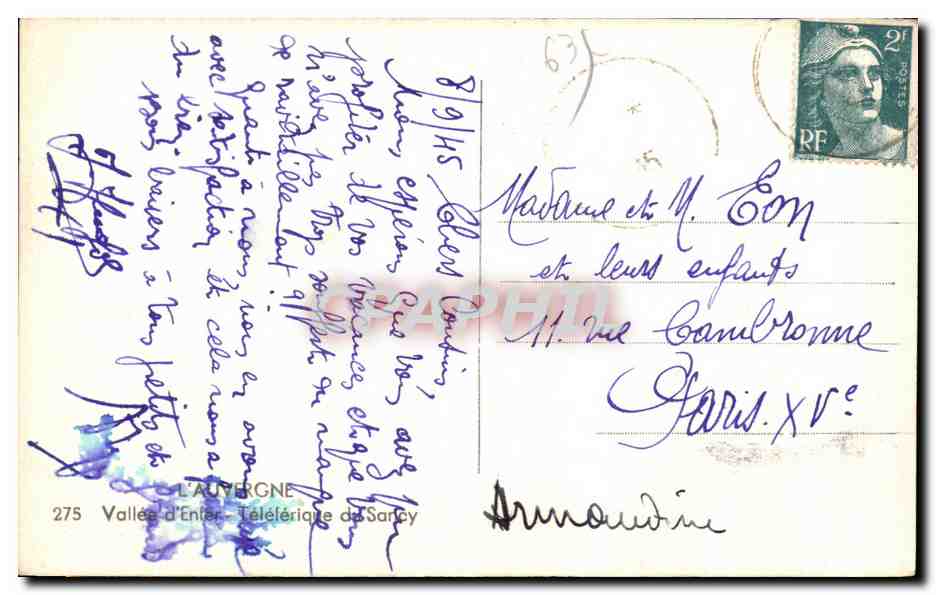 8/9/45. Chers Cousins,
Nous espérons que vous avez pu
profiter de vos vacances et que vous
n'avez pas trop souffert du manque
de ravitaillement !
Quant à nous, nous en avons
avec satisfaction et cela nous a
du bien.
Bons baisers à tous petits et
L'AUVERGNE
275 Vallée d'Enfer - Téléférique de Sancy
63
2F
POSTES
RF
Madame et M. Eon
et leurs enfants
11. rue Cambronne
Paris. XVe
Armandine
CPAPHIL